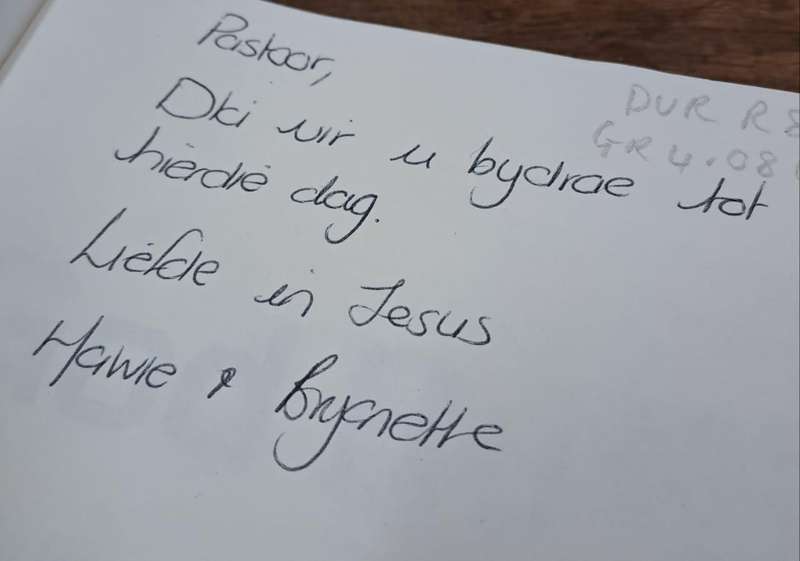 Pastoor,
Dki vir u bydrae tot
hierdie dag.
Liefde in Jesus
Hawie & Brynette
DUR R 8
GR 4.08